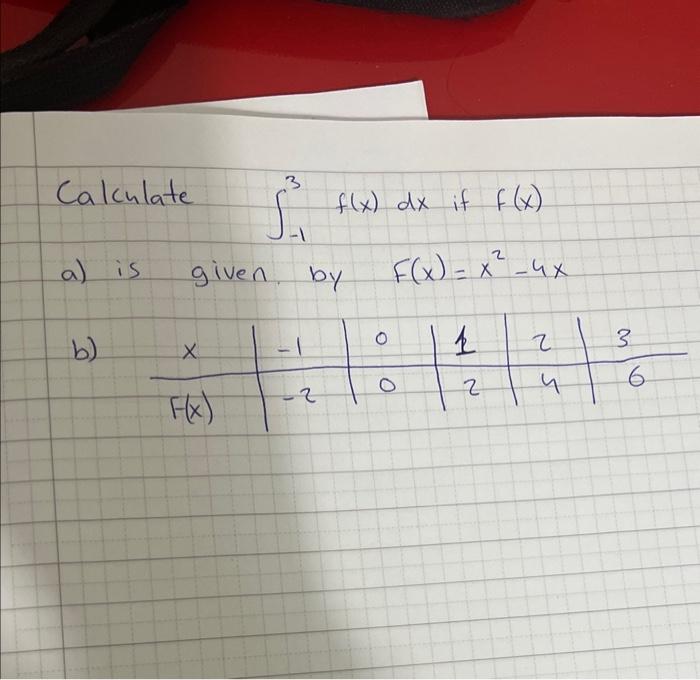 Calculate ∫₋₁³ f(x) dx if f(x)
a) is given by F(x) = x² - 4x
b) x | -1 | 0 | 1 | 2 | 3
F(x) | -2 | 0 | 2 | 4 | 6